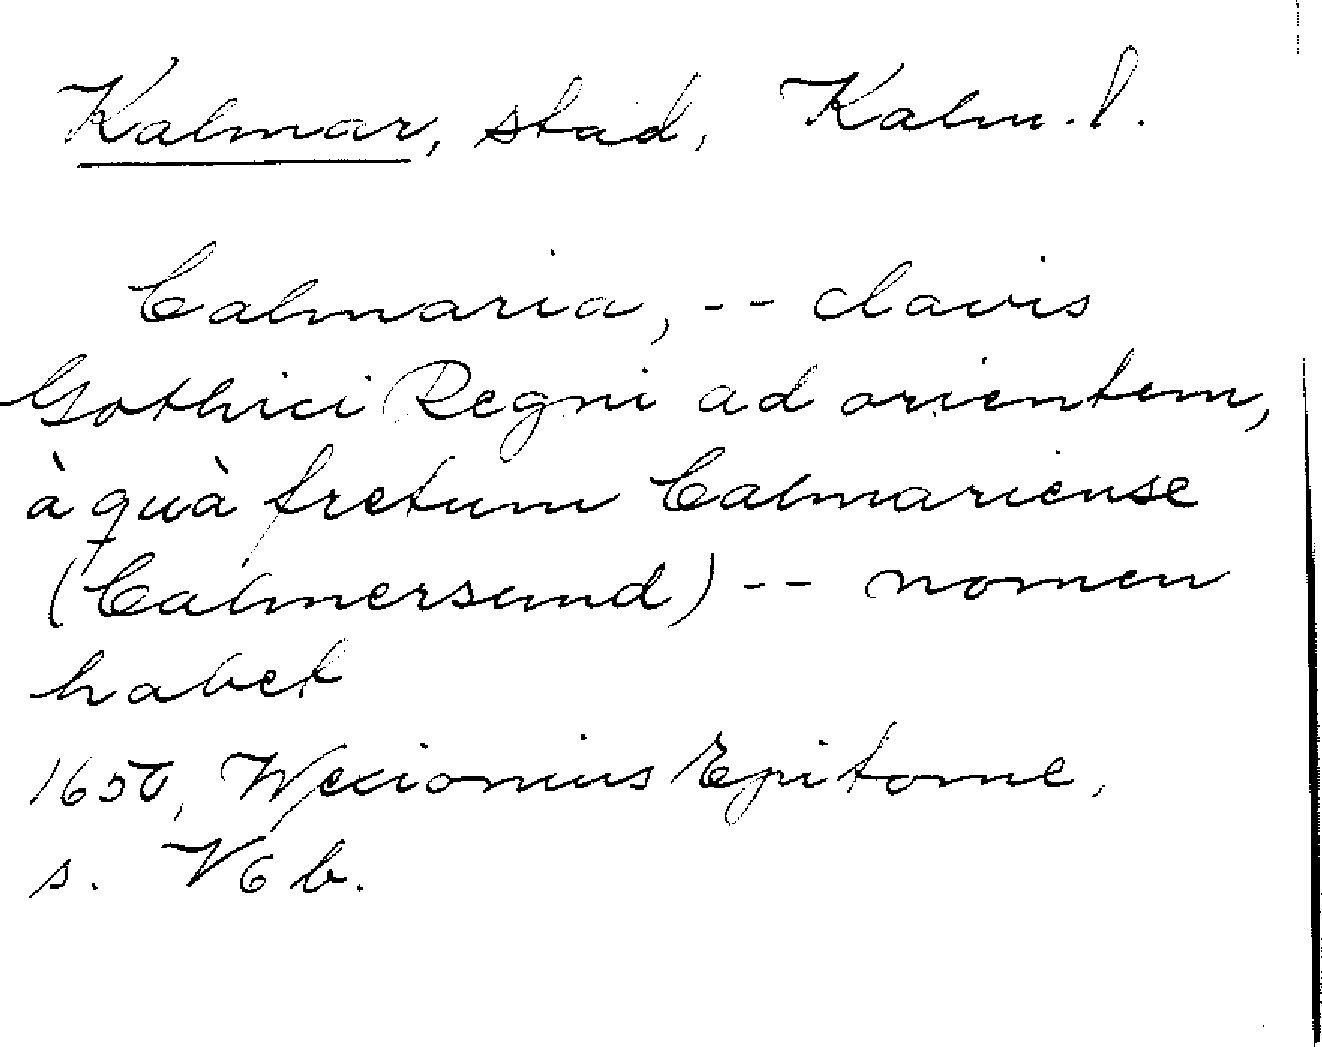 Kalmar, stad, Kalm. l.
Calmaria, -- clavis
Gothici Regni ad orientem,
à quà fretum Calmariense
(Calmersund) -- nomen
habet
1650, Wexionius Epitome,
s. V6 b.